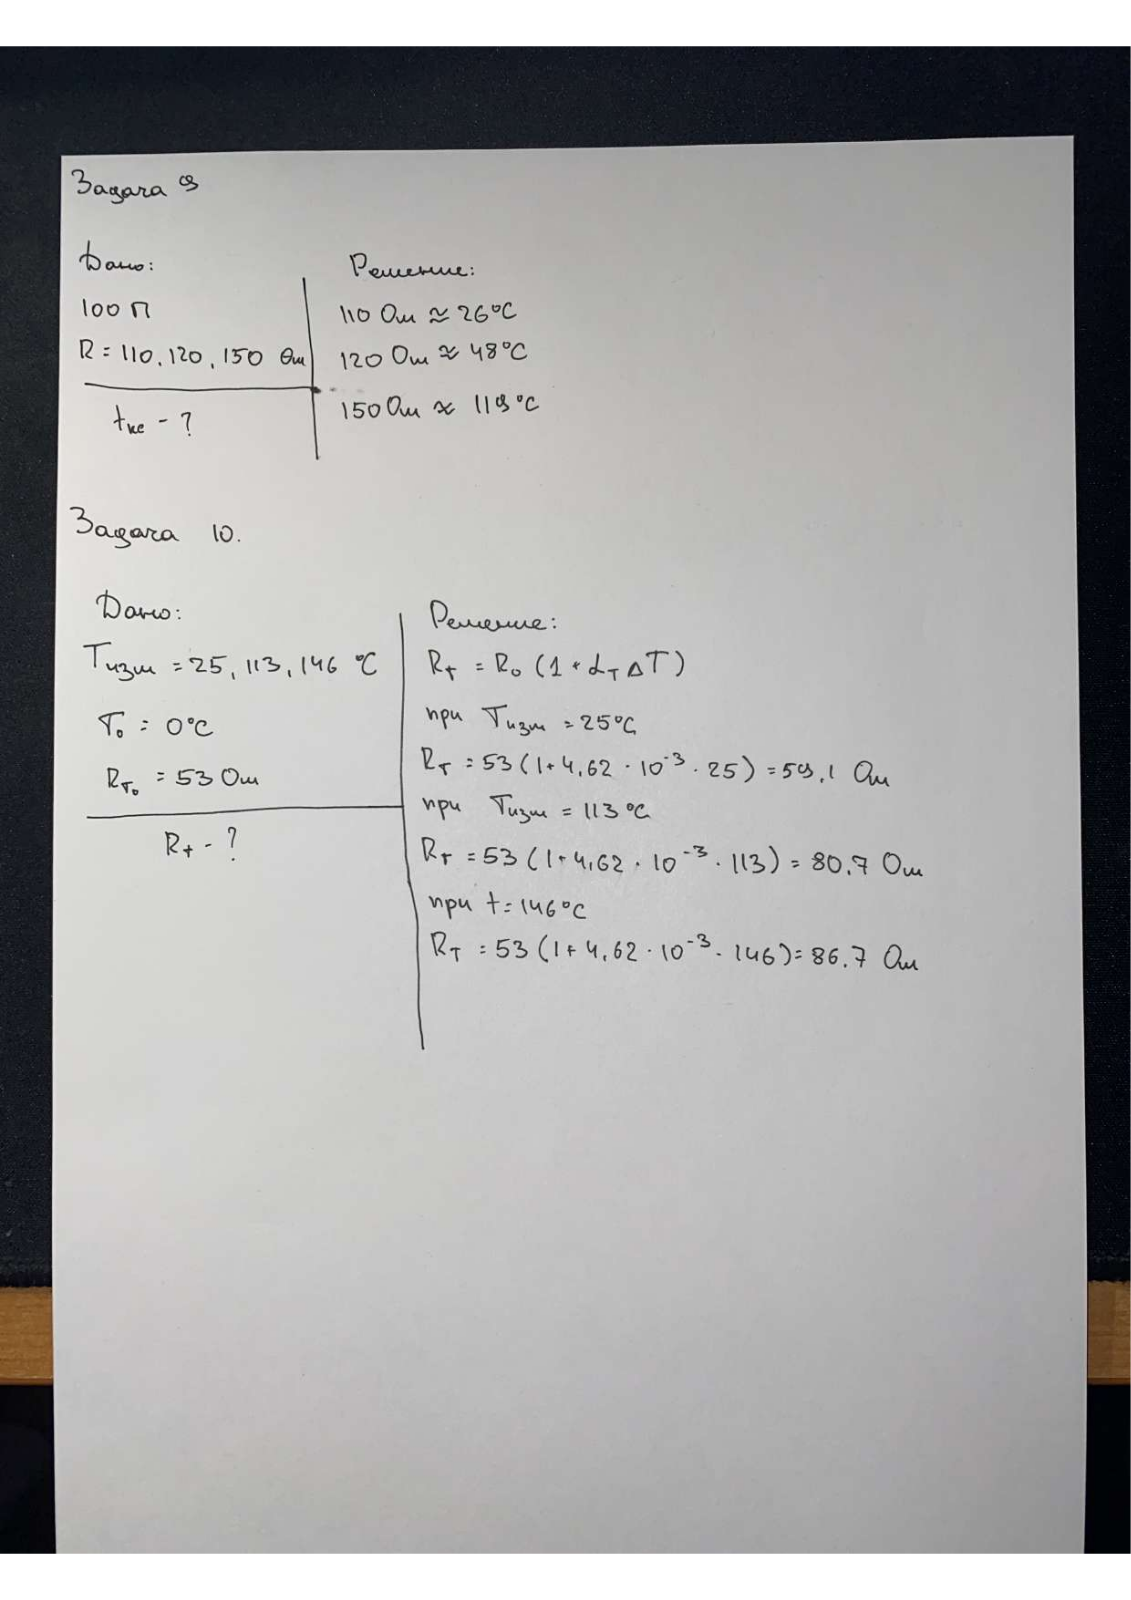 Задача 9
Дано:
100 П
R = 110, 120, 150 Ом
tнс - ?
Решение:
110 Ом ≈ 26°C
120 Ом ≈ 48°C
150 Ом ≈ 119°C
Задача 10.
Дано:
Tизм = 25, 113, 146 °C
T₀ = 0°C
R_T₀ = 53 Ом
R_t - ?
Решение:
R_t = R₀ (1 + α_T ΔT)
при Tизм = 25°C
R_T = 53 (1 + 4,62 · 10⁻³ · 25) = 59,1 Ом
при Tизм = 113°C
R_T = 53 (1 + 4,62 · 10⁻³ · 113) = 80,7 Ом
при t = 146°C
R_T = 53 (1 + 4,62 · 10⁻³ · 146) = 86.7 Ом